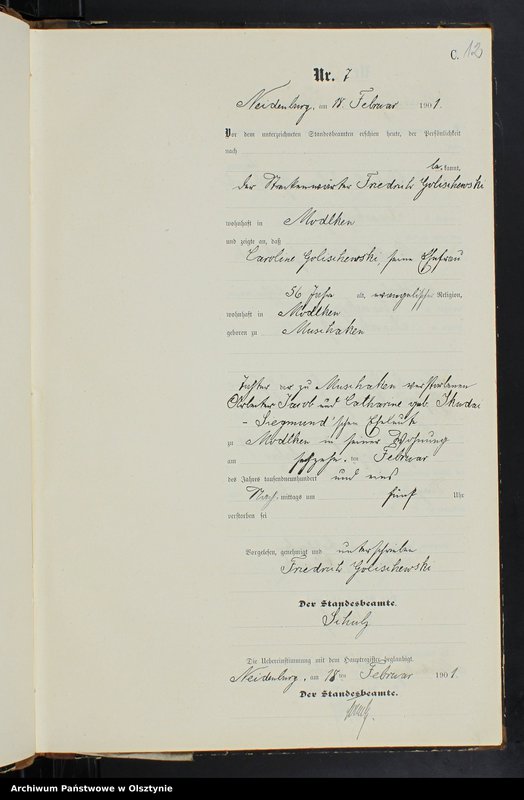 C. 12
Nr. 7
Neidenburg, am 18 Februar 1901.
Vor dem unterzeichneten Standesbeamten erschien heute, der Persönlichkeit
nach
be kannt,
der Streckenwärter Friedrich Golischewski
wohnhaft in Modlken
und zeigte an, daß
Caroline Golischewski, seine Ehefrau
56 Jahre alt, evangelischer Religion,
wohnhaft in Modlken
geboren zu Muschaken
Tochter der zu Muschaken verstorbenen
Arbeiter Jacob und Catharine geb.
- Siegmund'schen Eheleute
zu Modlken in seiner Wohnung
am sechzehn ten Februar
des Jahres tausendneunhundert und eins
Nach mittags um fünf Uhr
verstorben sei
Vorgelesen, genehmigt und unterschrieben
Friedrich Golischewski
Der Standesbeamte.
Schulz
Die Uebereinstimmung mit dem Hauptregister beglaubigt.
Neidenburg, am 18 ten Februar 1901.
Der Standesbeamte.
Schulz
Archiwum Państwowe w Olsztynie